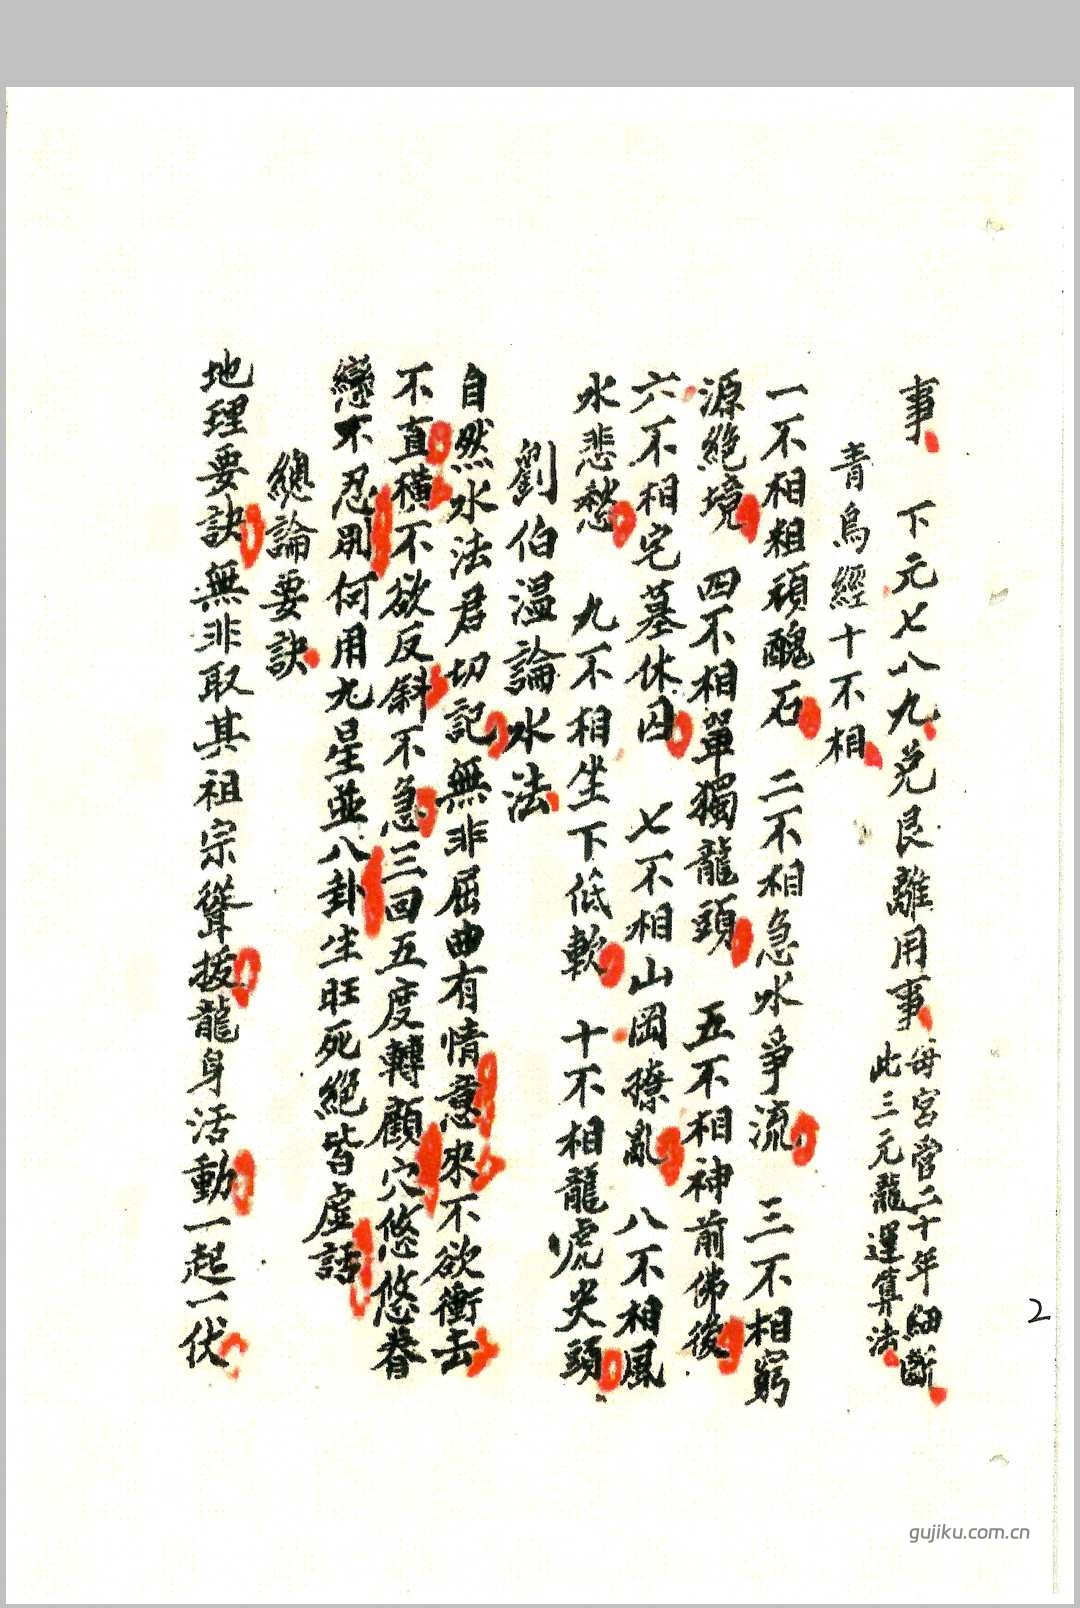 事 下元七八九兑艮離用事 每宮當二十年細斷
此三元龍運算法
青烏經十不相
一不相粗頑醜石 二不相急水爭流 三不相窮
源絕境 四不相單獨龍頭 五不相神前佛後
六不相宅墓休囚 七不相山岡撩亂 八不相風
水悲愁 九不相坐下低軟 十不相龍虎尖頭
劉伯溫論水法
自然水法君切記無非屈曲有情意來不欲衝去
不直橫不欲反斜不急三回五度轉顧穴悠悠眷
戀不忍別何用九星並八卦生旺死絕皆虛話
總論要訣
地理要訣無非取其祖宗聳拔龍身活動一起一伏
2
gujiku.com.cn